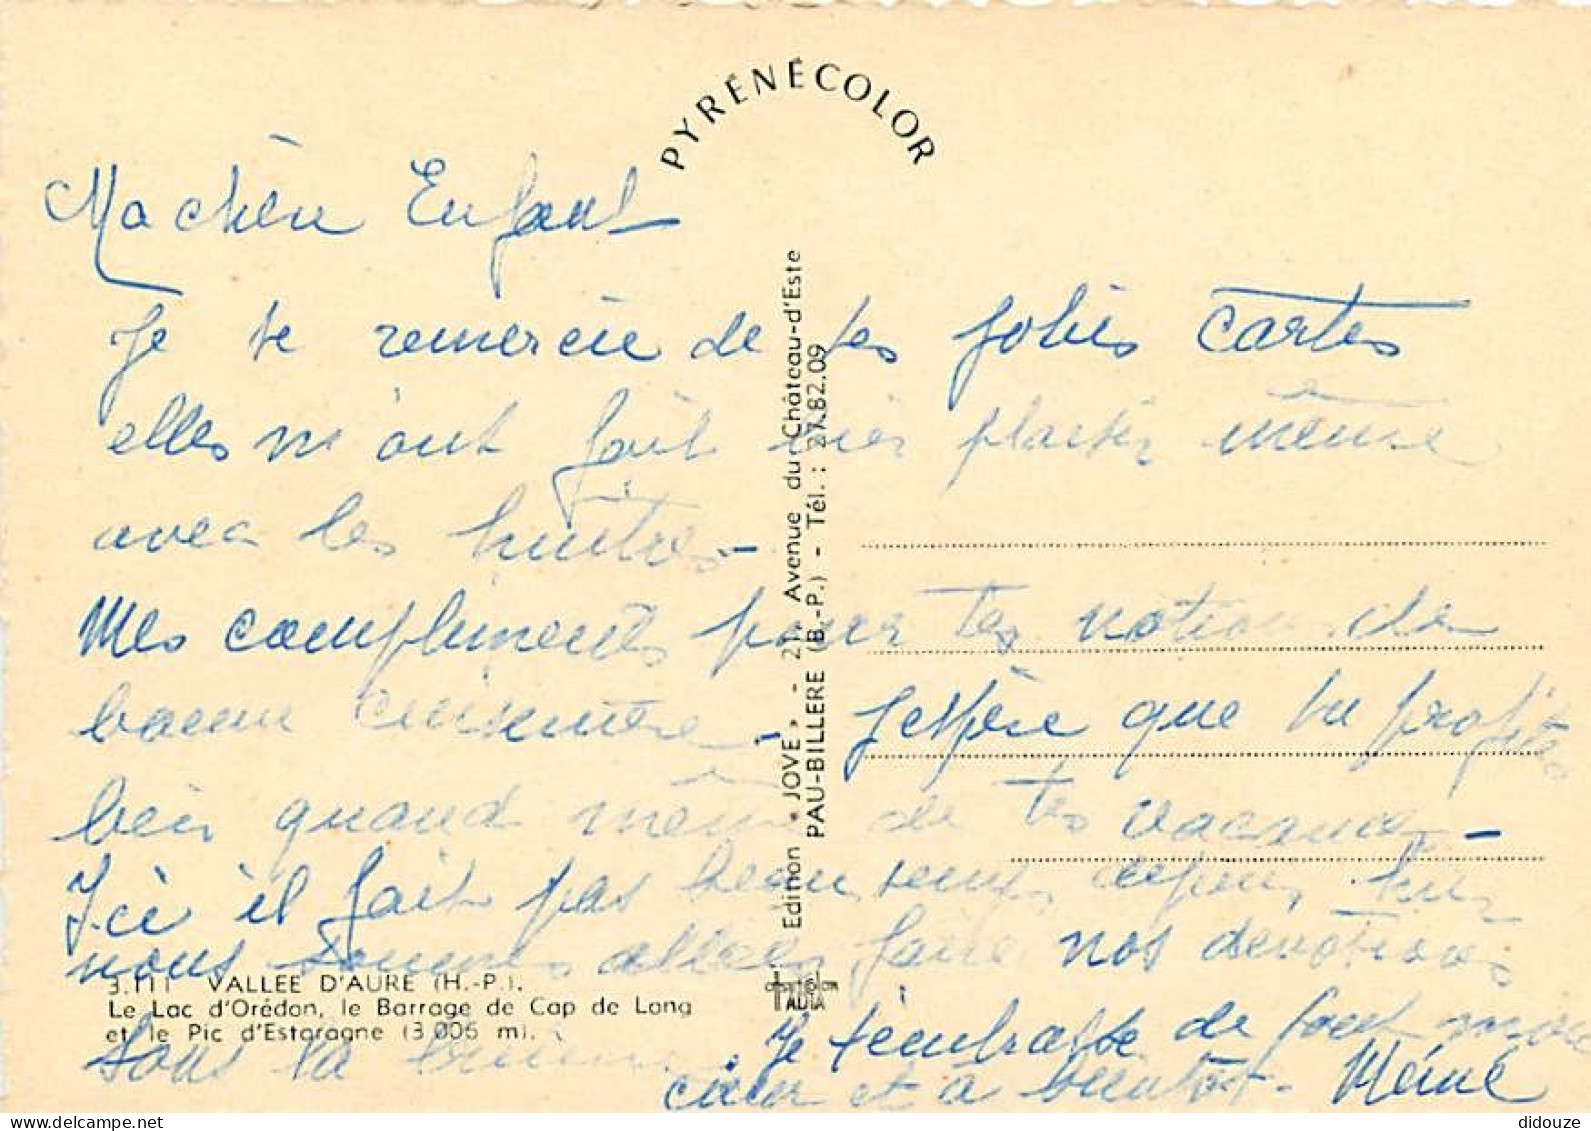 PYRÉNÉCOLOR
Ma chère Enfant
Je te remercie de tes jolies cartes
elles m'ont fait bien plaisir même
avec les huitres -
Mes compliments pour tes notions de
bonne cuisinière - J'espère que tu profites
bien quand même de tes vacances -
Ici il fait pas beau temps depuis hier
nous sommes allées faire nos dévotions
sous la brume. Je t'embrasse de tout mon
cœur et à bientôt - Mémé
Edition "JOVE" - 21, Avenue du Château-d'Este
PAU-BILLERE (B.-P.) - Tél. : 27.82.09
3.111 VALLEE D'AURE (H.-P.).
Le Lac d'Orédon, le Barrage de Cap de Long
et le Pic d'Estaragne (3 006 m).
didouze